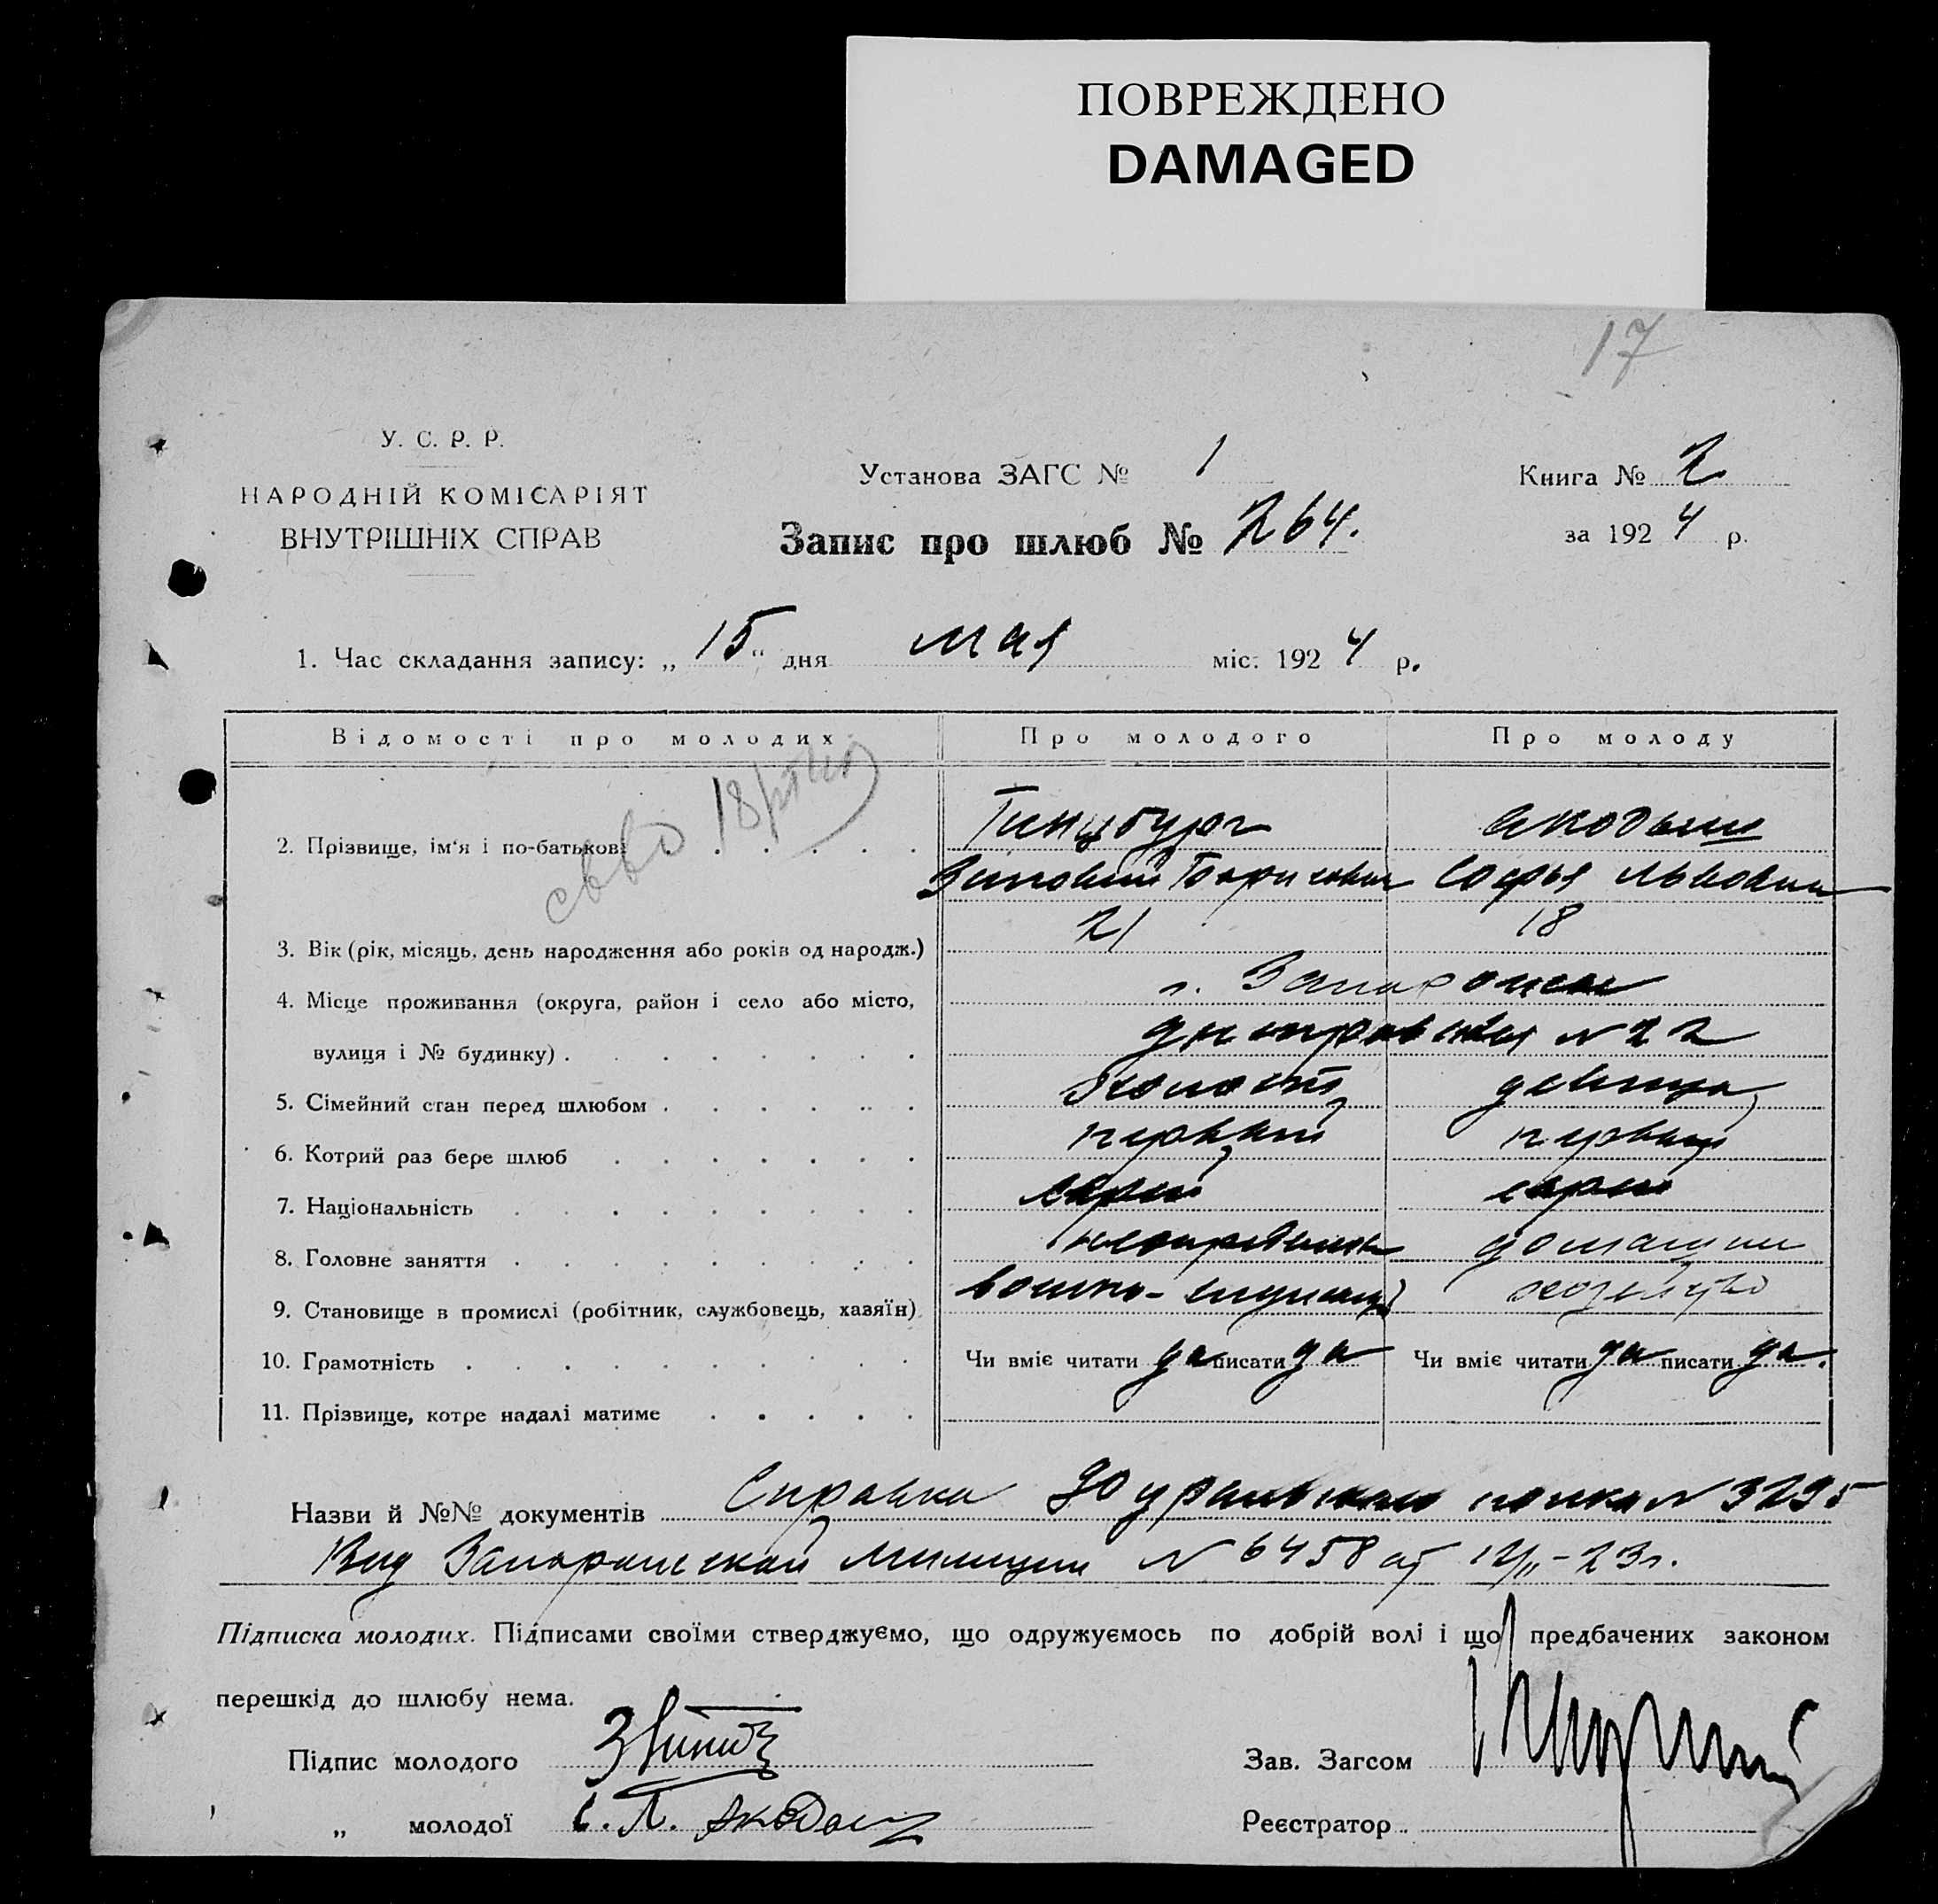 ПОВРЕЖДЕНО
DAMAGED
17
У. С. Р. Р.
НАРОДНІЙ КОМІСАРІЯТ
ВНУТРІШНІХ СПРАВ
Установа ЗАГС № 1
Книга № 2
Запис про шлюб № 264.
за 1924 р.
1. Час складання запису: „15“ дня мая міс. 1924 р.
Відомості про молодих
Про молодого
Про молоду
2. Прізвище, ім'я і по-батькові
Гинцбург
Зиновий Борисович
Софья Львовна
3. Вік (рік, місяць, день народження або років од народж.)
21
18
4. Місце проживання (округа, район і село або місто,
г. Запорожье
вулиця і № будинку)
Днепровская N 22
5. Сімейний стан перед шлюбом
холост
девица
6. Котрий раз бере шлюб
первый
первый
7. Національність
еврей
еврей
8. Головне заняття
домашнее
9. Становище в промислі (робітник, службовець, хазяїн)
военно-служащий
хозяйство
10. Грамотність
Чи вміє читати да писати да
Чи вміє читати да писати да.
11. Прізвище, котре надалі матиме
Назви й №№ документів Справка 90 уральского полка N 3295
Вид Запорожской Милиции N 6458 от 12/II-23г.
Підписка молодих. Підписами своїми стверджуємо, що одружуємось по добрій волі і що предбачених законом
перешкід до шлюбу нема.
Підпис молодого
Зав. Загсом
„ молодої С. Л.
Реєстратор